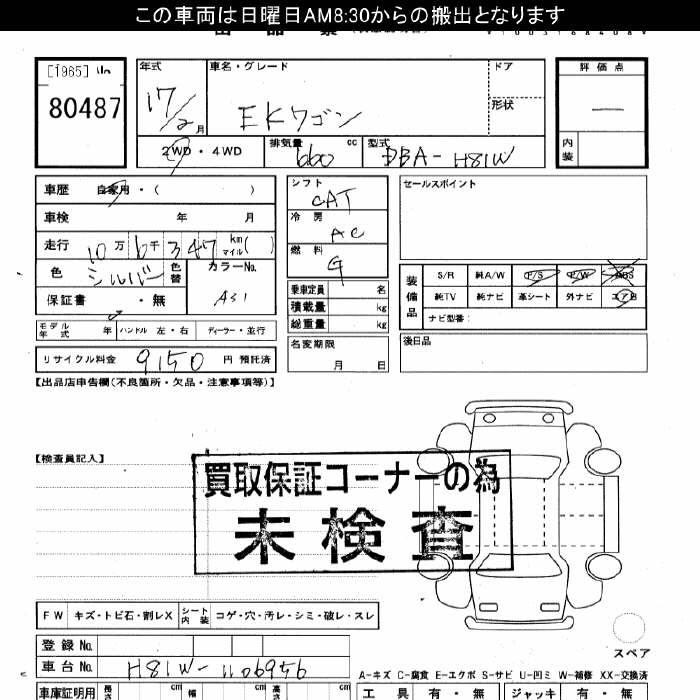 この車両は日曜日AM8:30からの搬出となります
[1965]
80487
年式
17/2月
車名・グレード
EKワゴン
ドア
形状
評価点
―
内装
2WD・4WD
排気量 660 cc
型式 DBA-H81W
車歴 自家用・( )
車検 年 月
走行 10万6千347km マイル( )
色 シルバー 色替
カラーNo. A31
保証書 ・無
モデル年式 年 ハンドル 左・右 ディーラー・並行
リサイクル料金 9150 円 預託済
シフト CAT
冷房 AC
燃料 G
乗車定員 名
積載量 kg
総重量 kg
名変期限
月 日
セールスポイント
装備品
S/R 純A/W P/S P/W ABS
純TV 純ナビ 革シート 外ナビ エアB
ナビ型番:
後日品
【出品店申告欄(不良箇所・欠品・注意事項等)】
【検査員記入】
買取保証コーナーの為
未検査
FW キズ・トビ石・割レX シート内装 コゲ・穴・汚レ・シミ・破レ・スレ
スペア
登録No.
車台No. H81W-1106956
A-キズ C-腐食 E-エクボ S-サビ U-凹ミ W-補修 XX-交換済
車庫証明用 長さ cm 幅 cm 高さ cm
工具 有・無 ジャッキ 有・無